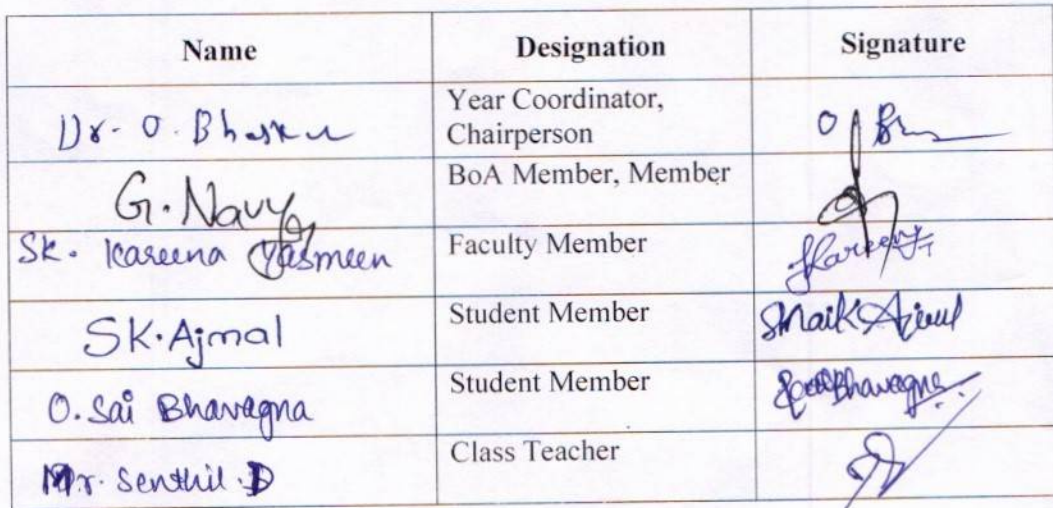 Name Designation Signature
Dr. O. Bhaskar Year Coordinator,
Chairperson O
G. Navya BoA Member, Member
SK. Kareena Yasmeen Faculty Member Kareena
SK. Ajmal Student Member Shaik Ajmal
O. Sai Bhavagna Student Member Bhavagna
Mr. Senthil. D Class Teacher